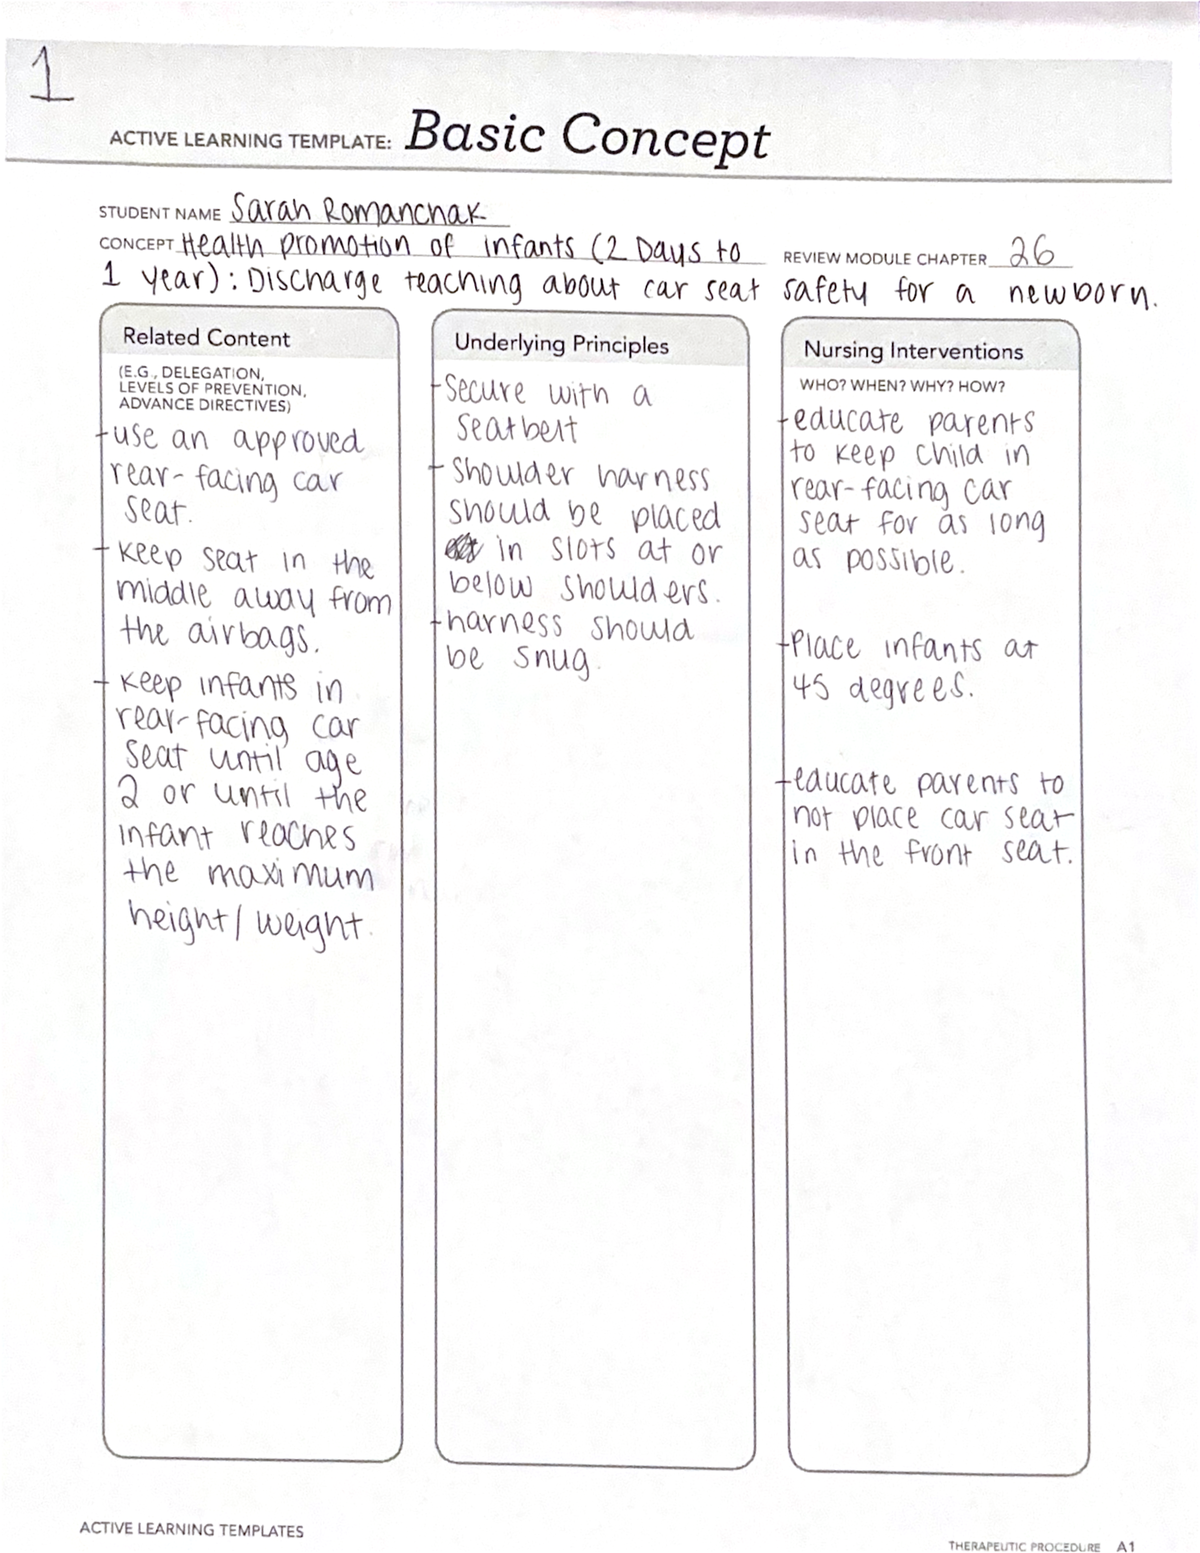 1
ACTIVE LEARNING TEMPLATE: Basic Concept
STUDENT NAME Sarah Romanchak
CONCEPT Health promotion of infants (2 Days to
REVIEW MODULE CHAPTER 26
1 year): Discharge teaching about car seat safety for a newborn.
Related Content
(E.G., DELEGATION,
LEVELS OF PREVENTION,
ADVANCE DIRECTIVES)
-use an approved
rear-facing car
seat.
- Keep seat in the
middle away from
the airbags.
- Keep infants in
rear-facing car
seat until age
2 or until the
infant reaches
the maximum
height/weight.
Underlying Principles
-Secure with a
seatbelt
- Shoulder harness
should be placed
in slots at or
below shoulders.
-harness should
be snug.
Nursing Interventions
WHO? WHEN? WHY? HOW?
-educate parents
to keep child in
rear-facing car
seat for as long
as possible.
-Place infants at
45 degrees.
-educate parents to
not place car seat
in the front seat.
ACTIVE LEARNING TEMPLATES
THERAPEUTIC PROCEDURE A1